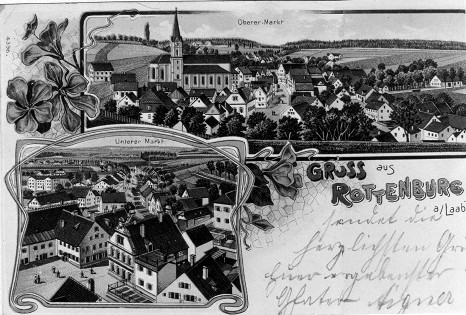 4336.
Oberer-Markt
Unterer Markt
GRUSS aus
ROTTENBURG
a/Laab
sendet die
herzlichsten Grü
Euer ergebenster
Aigner